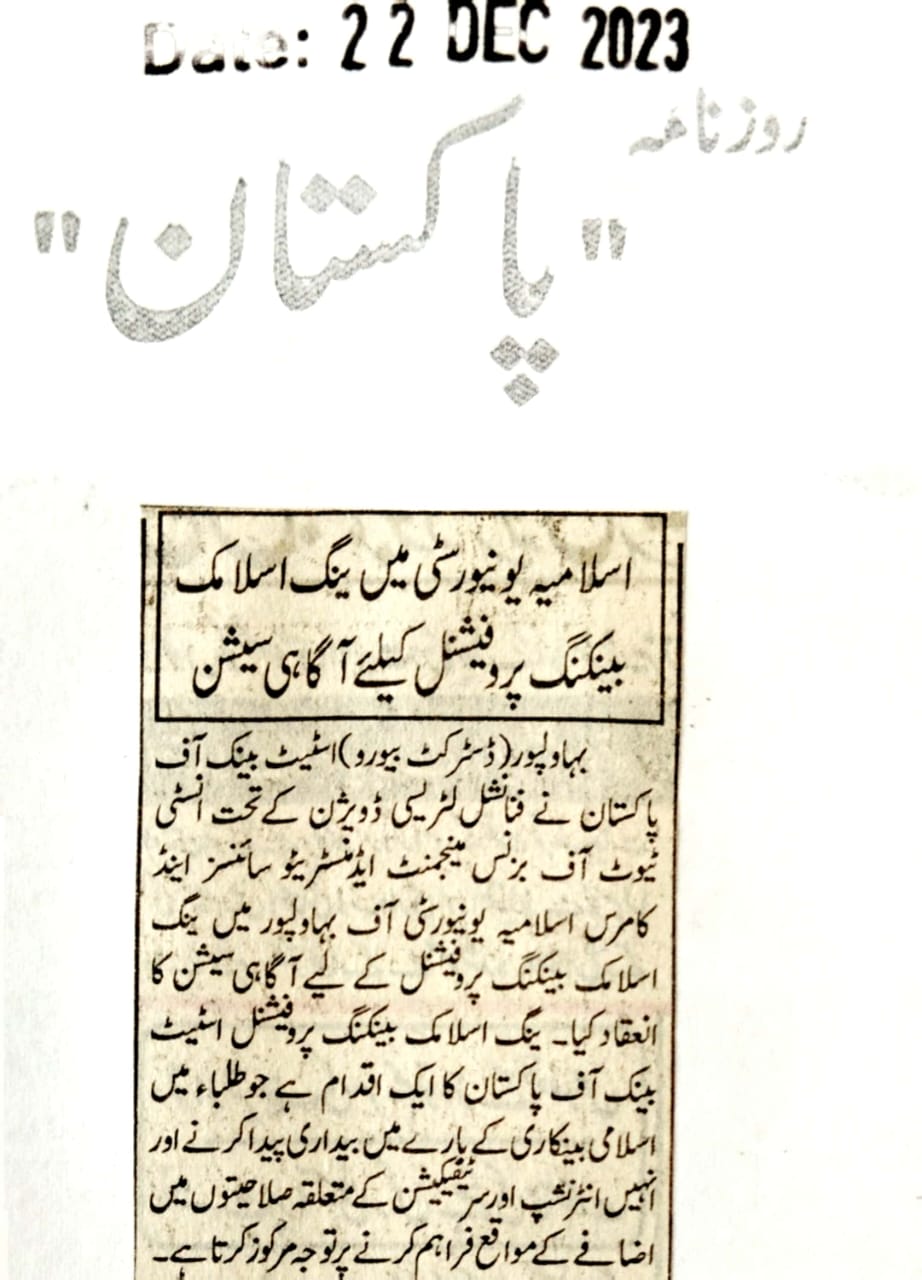 Date: 22 DEC 2023
روزنامہ
"پاکستان"
اسلامیہ یونیورسٹی میں ینگ اسلامک
بینکنگ پروفیشنل کیلئے آگاہی سیشن
بہاولپور(ڈسٹرکٹ بیورو)اسٹیٹ بینک آف
پاکستان نے فنانشل لٹریسی ڈویژن کے تحت انسٹی
ٹیوٹ آف بزنس مینجمنٹ ایڈمنسٹریٹو سائنسز اینڈ
کامرس اسلامیہ یونیورٹی آف بہاولپور میں ینگ
اسلامک بینکنگ پروفیشنل کے لیے آگاہی سیشن کا
انعقاد کیا۔ ینگ اسلامک بینکنگ پروفیشنل اسٹیٹ
بینک آف پاکستان کا ایک اقدام ہے جو طلباء میں
اسلامی بینکاری کے بارے میں بیداری پیدا کرنے اور
انہیں انٹرنشپ اور سرٹیفکیشن کے متعلقہ صلاحیتوں میں
اضافے کے مواقع فراہم کرنے پر توجہ مرکوز کرتا ہے۔